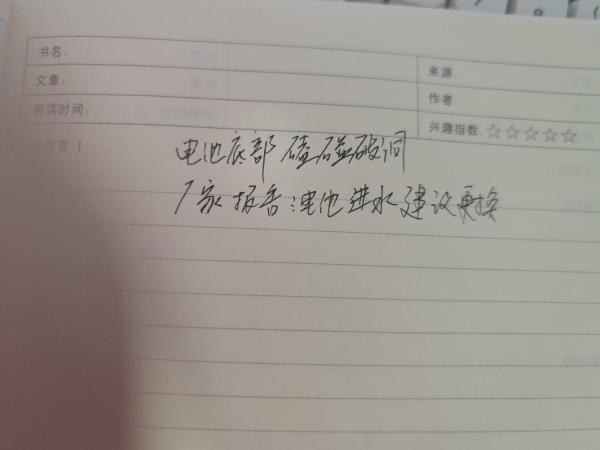 书名:
来源:
文章:
作者:
阅读时间:
兴趣指数:☆☆☆☆☆
电池底部磕碰破洞
厂家报告:电池进水建议更换